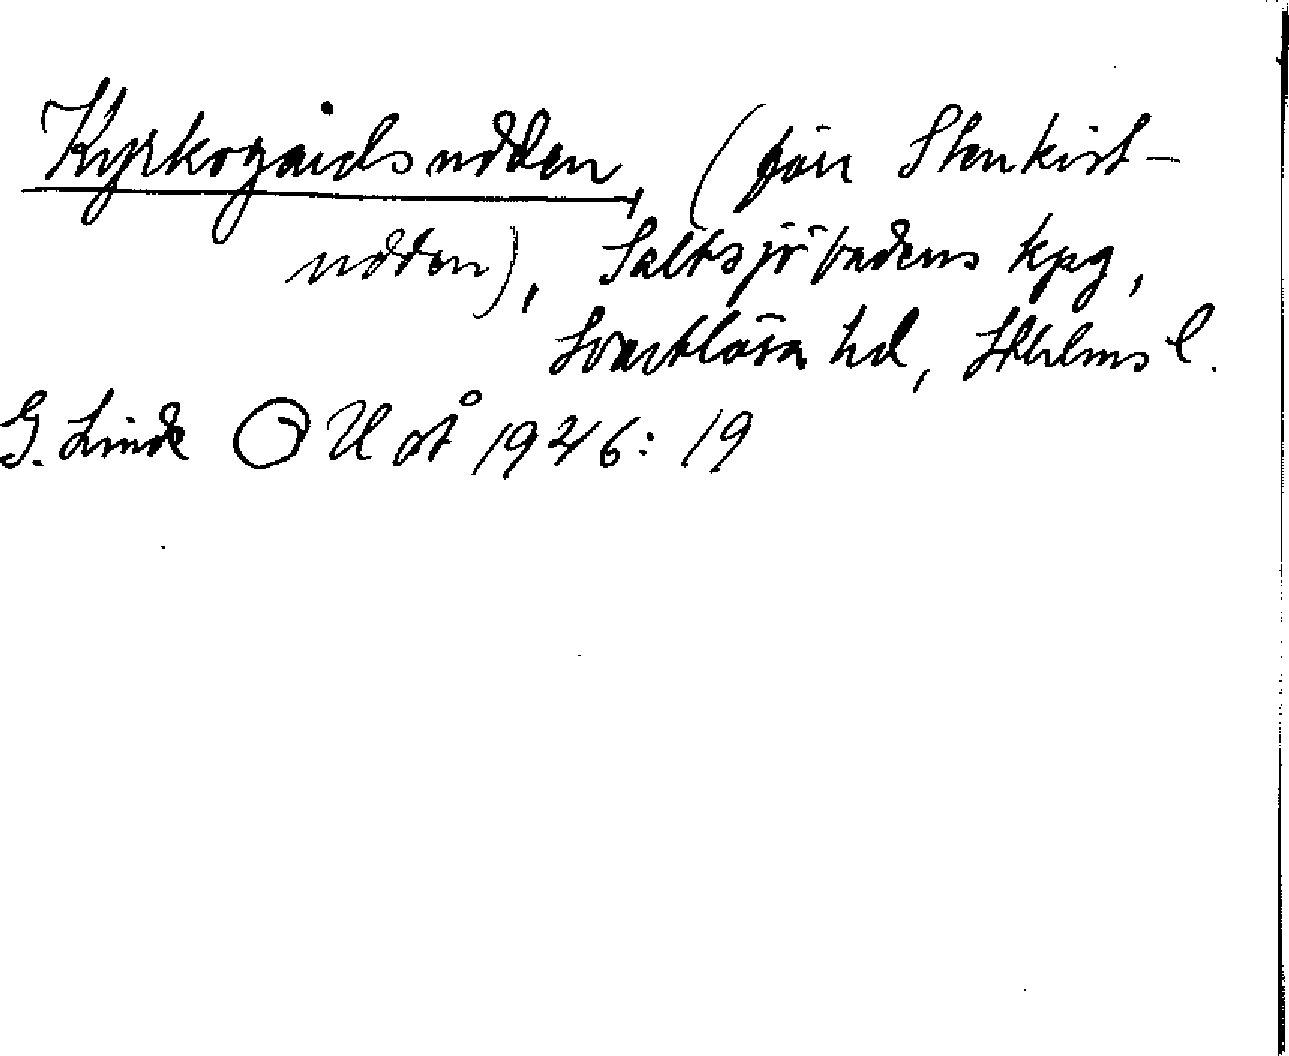 Kyrkogårdsudden, (förr Stenkist-
udden), Saltsjöbadens kpg,
Svartlösa hd, Sthlms l.
G. Linde U at 1946: 19